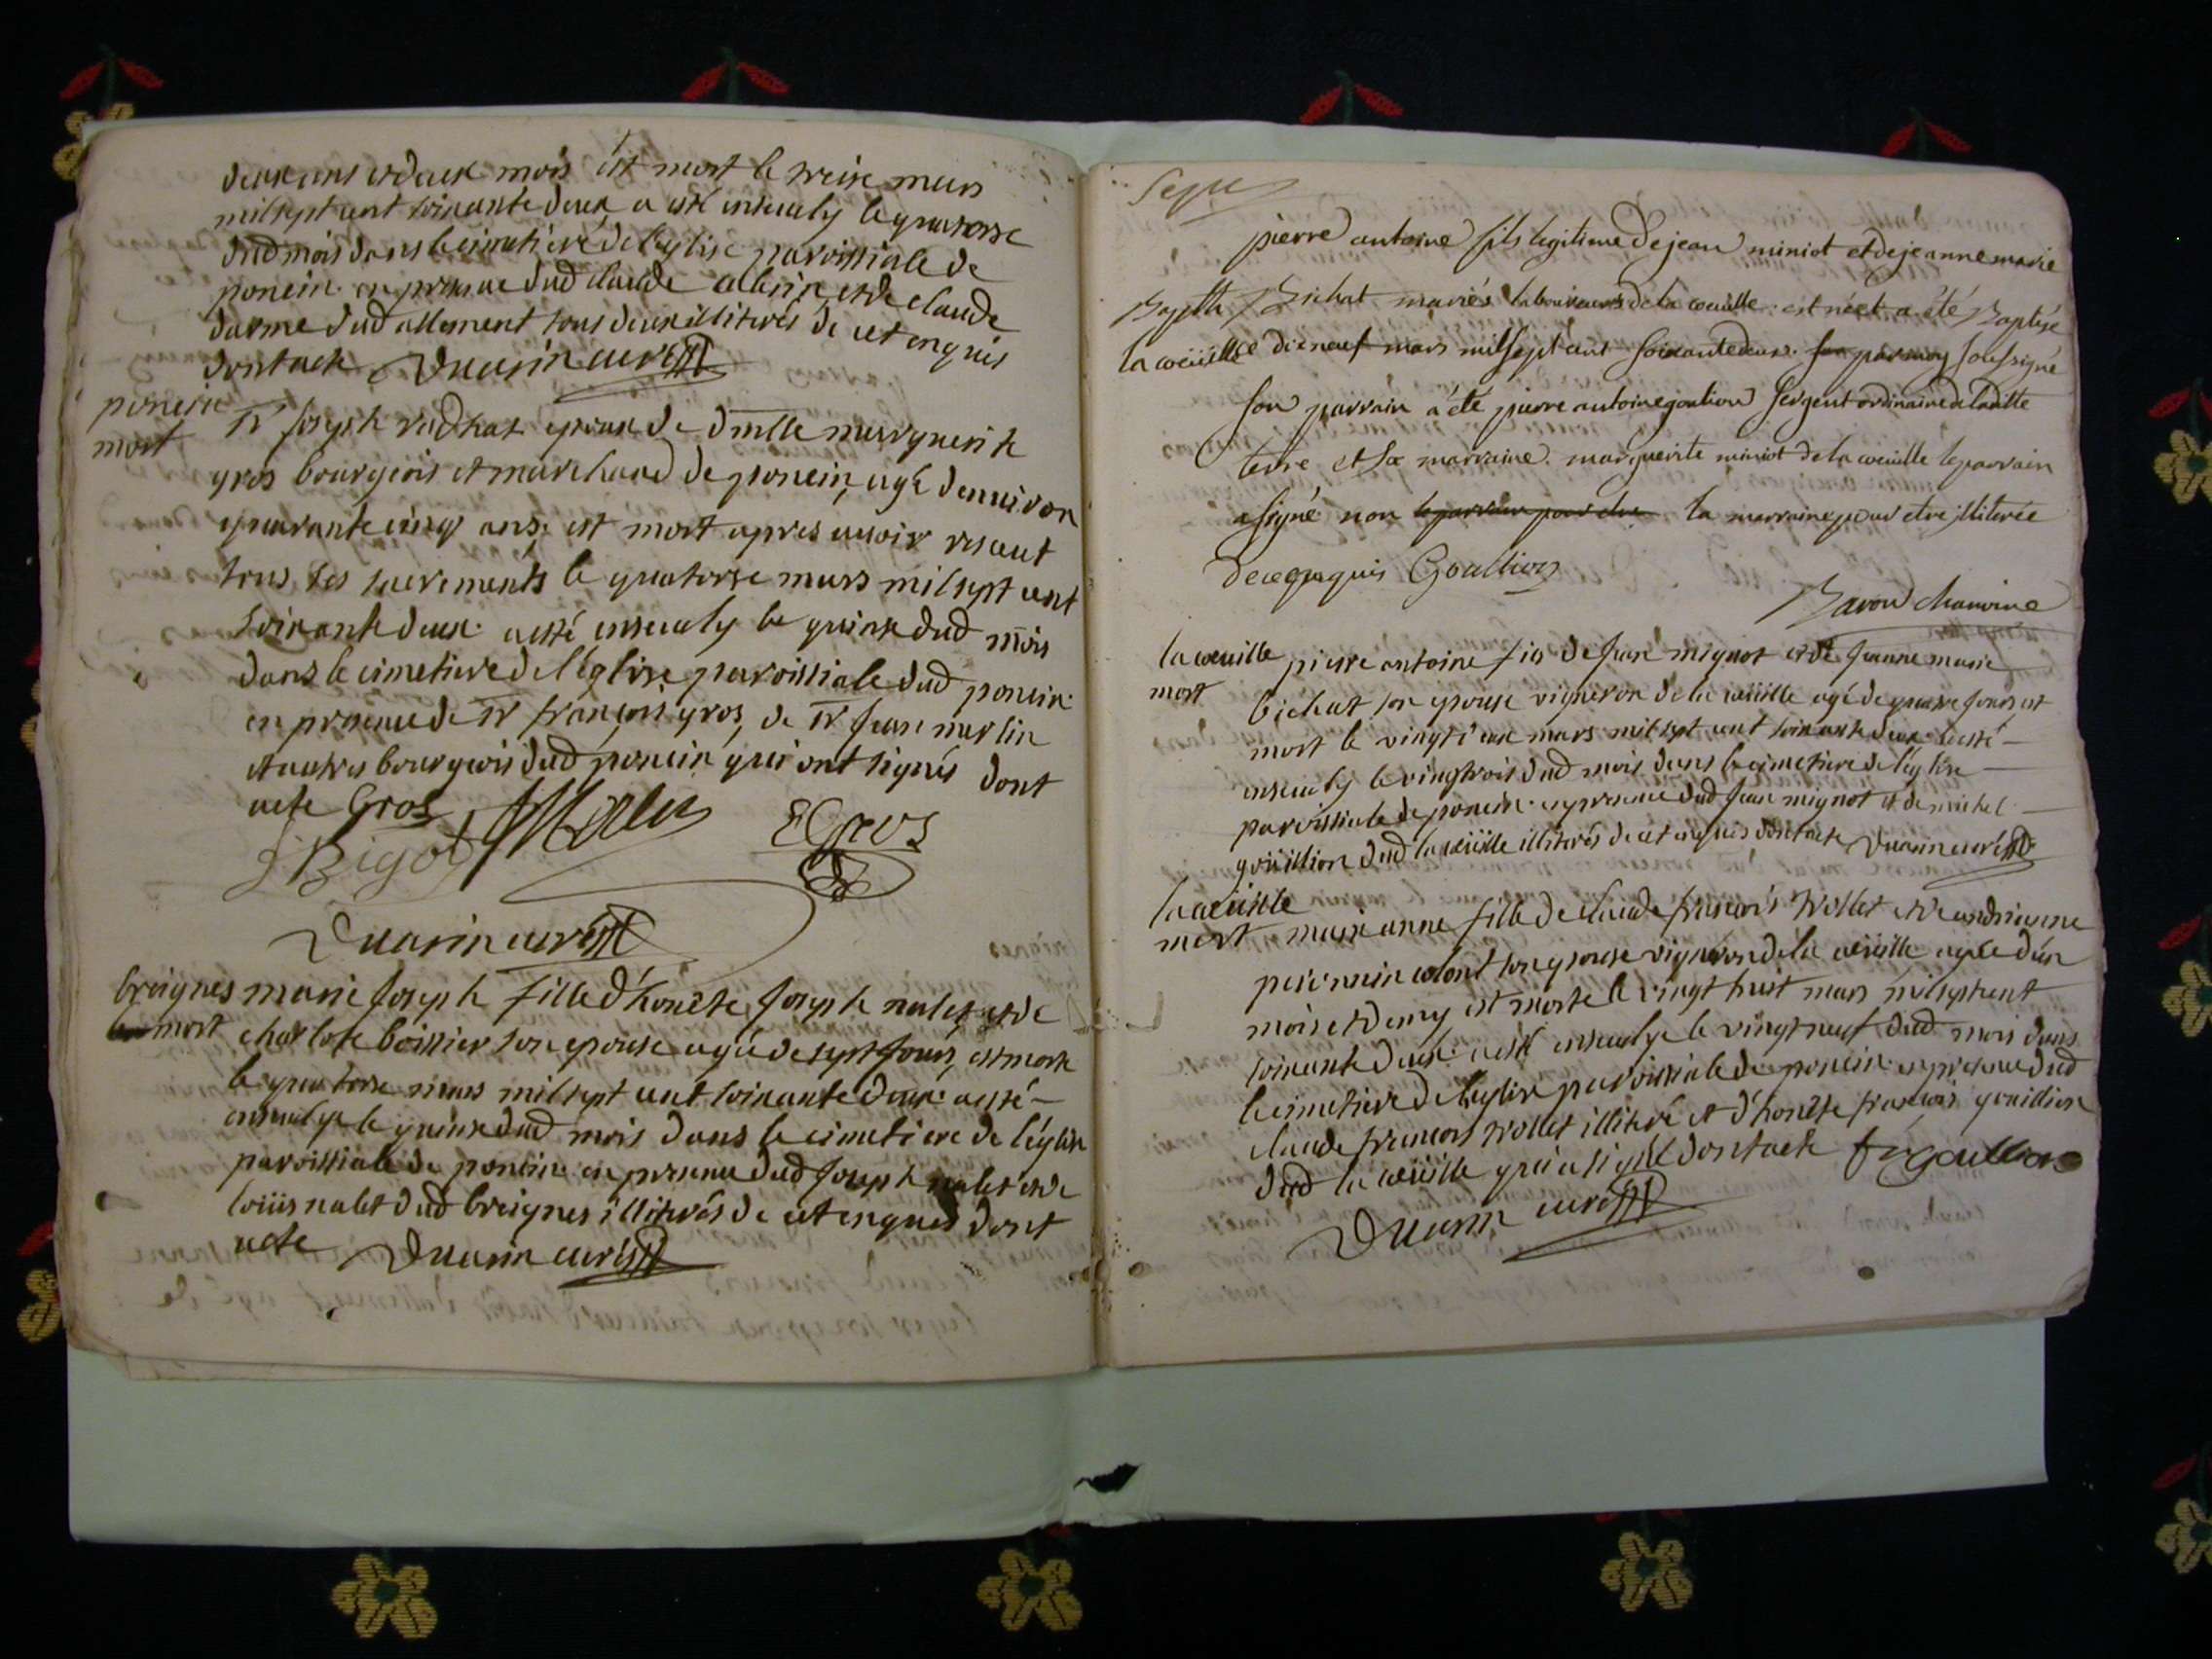 deux ans et deux mois est mort le treize mars
mil sept cent soixante deux a esté ensevely le quatorze
dud mois dans le cimetiere de l'eglise paroissiale de
poncin en presence dud claude et de claude
dud allement tous deux illiterés de ce enquis
dont acte Duarin curé
poncin
mort
Sr joseph rodhat epoux de dmlle marguerite
gros bourgeois et marchand de poncin, agé denviron
quarante cinq ans est mort apres avoir resceut
tous les sacrements le quatorze mars mil sept cent
soixante deux a esté ensevely le quinze dud mois
dans le cimetiere de l'église paroissiale dud poncin
en presence de Sr françois gros, de Sr jean merlin
et autres bourgeois dud poncin qui ont signés dont
acte Gros
J Bigot EGros
Duarin curé
breignes marie joseph fille d'honeste joseph nalet et de
mort charlote boissier son epouse agée de sept jours, est morte
le quatorze mars mil sept cent soixante deux a esté
ensevelye le quinze dud mois dans le cimetiere de l'église
paroissiale de poncin en presence dud joseph nalet et de
loüis nalet dud breignes illiterés de ce enquis dont
acte Duarin curé
Sept
pierre antoine fils legitime de jean miniot et de jeanne marie
Bapth Bichat mariés laboureurs de la coeuille est né et a été Baptisé
la coeüille le dixneuf mars mil sept cent soixante deux par moy soussigné
son parrain a été pierre antoine goution sergent ordinaire de ladite
terre et sa marraine marguerite miniot de la coeuille le parrain
a signé non le parrain pour etre la marraine pour etre illiterée
de ce enquis Goullion
Baron chanoine
la coeuille pierre antoine fils de jean mignot et de jeanne marie
mort bichat son epouse vigneron de la coeüille agé de quatre jours est
mort le vingt deux mars mil sept cent soixante deux a esté
ensevely le vingtrois dud mois dans le cimetiere de l'église
paroissiale de poncin en presence dud jean mignot et de michel
goüillion dud la coeüille illiterés de ce enquis dont acte Duarin curé
la coeüille
mort marianne fille de claude françois trollet et de andrianne
son epouse vigneron de la coeüille agée d'un
mois et demy est morte le vingt huit mars mil sept cent
soixante deux a esté ensevelye le vingt neuf dud mois dans
le cimetiere de l'eglise paroissiale de poncin en presence dud
claude françois trollet illiteré et d'honeste françois gouillion
dud la coeüille qui a signé dont acte fr goullion
Duarin curé